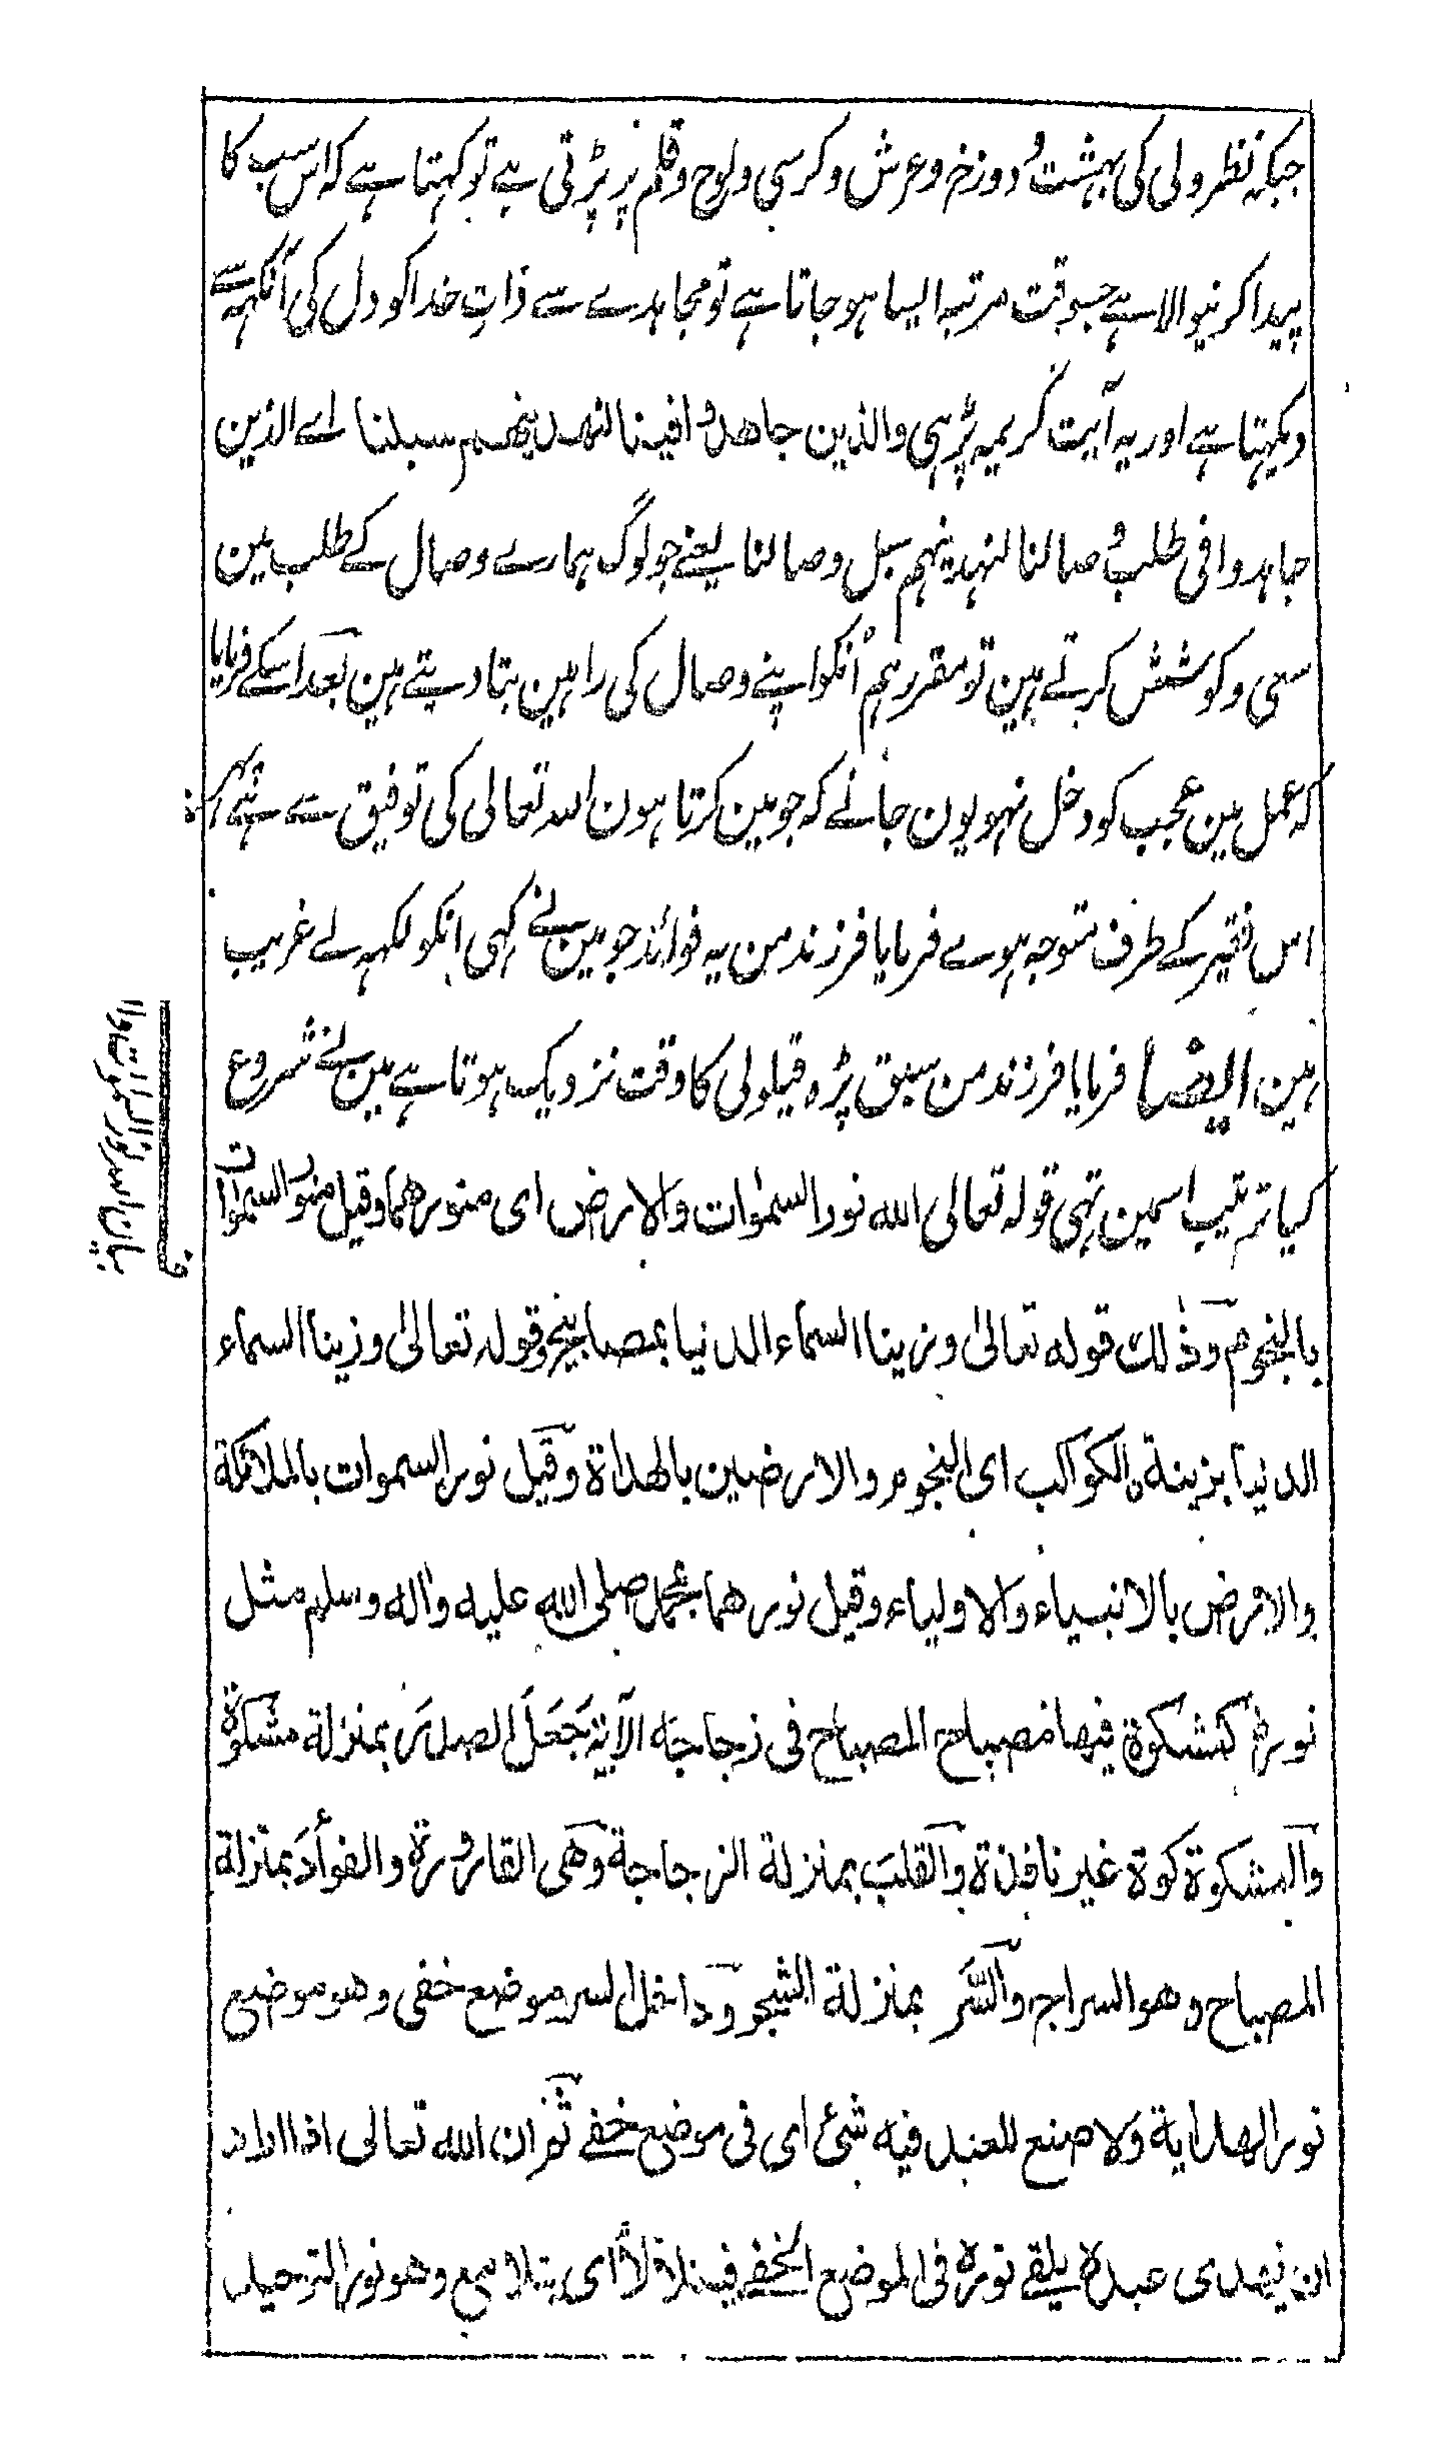 جبکہ نظر ولی کی بہشت و دوزخ و عرش و کرسی و لوح و قلم پر پڑتی ہے تو کہتا ہے کہ اس سب کا
پیدا کرنیوالا ہے جسوقت مرتبہ ایسا ہو جاتا ہے تو مجاہدے سے ذات خدا کو دل کی آنکہہ سے
دیکہتا ہے اور یہ آیت کریمہ پڑہی والذین جاهدوا فینا لنهدینهم سبلنا اے الذین
جاہدوا فی طلب وصالنا لنہدینہم سبل وصالنا یعنے جو لوگ ہمارے وصال کے طلب مین
سعی و کوشش کرتے ہین تو مقرر ہم انکو اپنے وصال کی راہین بتا دیتے ہین بعد اسکے فرمایا
کہ عمل مین عجب کو دخل نہو یون جانے کہ جو مین کرتا ہون اللہ تعالی کی توفیق سے ہے
اس فقیر کے طرف متوجہ ہوے فرمایا فرزند من یہ فوائد جو مین نے کہی انکو لکہہ لے غریب
ہین ایضا فرمایا فرزند من سبق پڑہ قیلولی کا وقت نزدیک ہوتا ہے مین نے شروع
کیا ترتیب اسمین تہی قولہ تعالی الله نور السموات والارض ای منورهما وقیل منور السموات
بالنجوم وذلك قوله تعالى وزینا السماء الدنیا بمصابیح وقوله تعالى وزینا السماء
الدنیا بزینة الکواکب ای النجوم والارضین بالهداة وقیل نور السموات بالملائکة
والارض بالانبیاء والاولیاء وقیل نورهما بمحمد صلی الله علیه واله وسلم مثل
نوره کمشکوة فیها مصباح المصباح فی زجاجة الآیة جعل الصدر بمنزلة مشکوة
والمشکوة کوة غیر نافذة والقلب بمنزلة الزجاجة وهی القارورة والفواد بمنزلة
المصباح وهو السراج والسر بمنزلة الشجر وداخل السر موضع خفی وهو موضع
نور الهدایة ولا صنع للعبد فیه شئ ای فی موضع خفے ثم ان الله تعالی اذا اراد
ان یهدی عبده یلقے نوره فی الموضع الخفے فیتلألأ ای یتلامع وهو نور التوحید
ف
بیان الله نور السموات والا